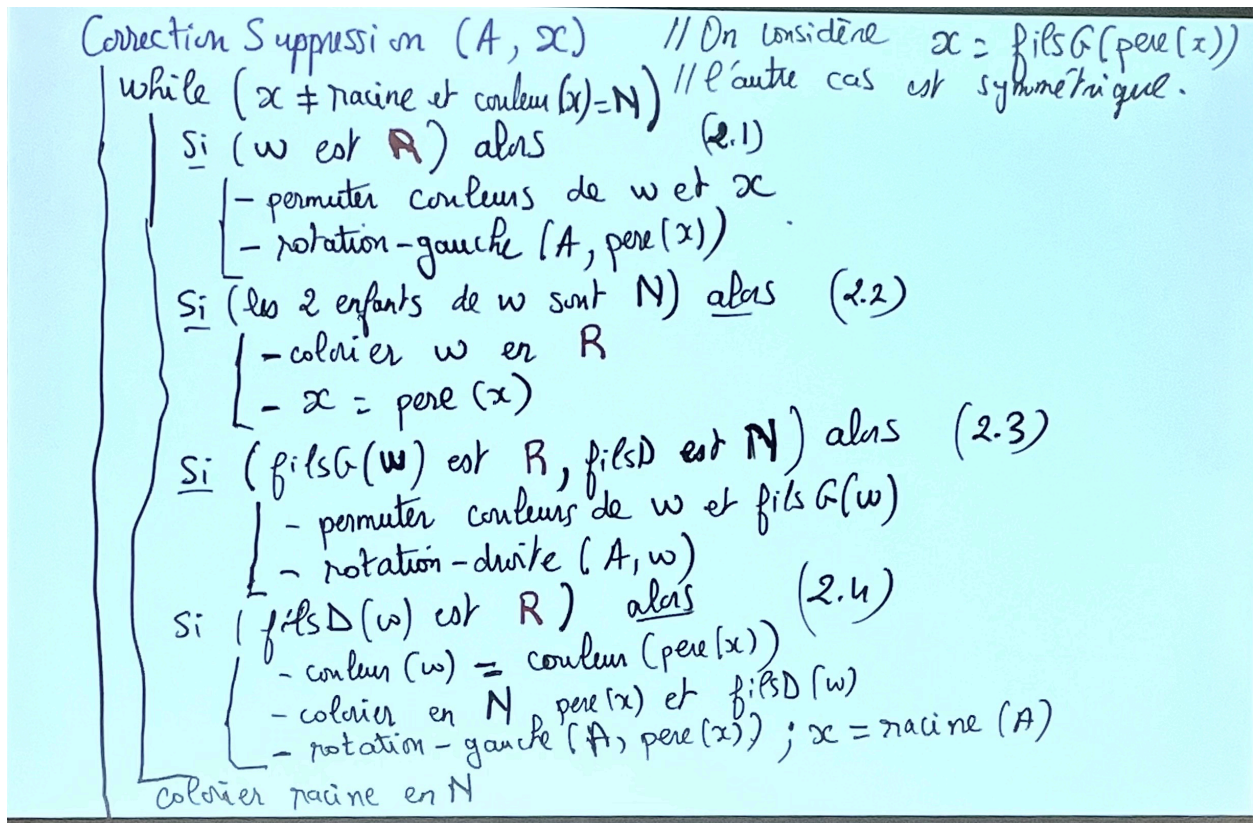 Correction Suppression (A, x) // On considère x = filsG(pere(x))
while (x ≠ racine et couleur(x)=N) // l'autre cas est symmétrique.
Si (w est R) alors (2.1)
- permuter couleurs de w et x
- rotation-gauche (A, pere(x))
Si (les 2 enfants de w sont N) alors (2.2)
- colorier w en R
- x = pere(x)
Si (filsG(w) est R, filsD est N) alors (2.3)
- permuter couleurs de w et filsG(w)
- rotation-droite (A, w)
Si (filsD(w) est R) alors (2.4)
- couleur(w) = couleur(pere(x))
- colorier en N pere(x) et filsD(w)
- rotation-gauche (A, pere(x)) ; x = racine (A)
colorier racine en N